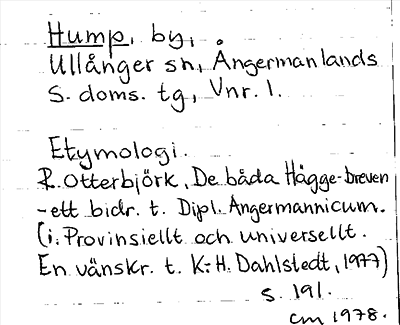 Hump, by,
Ullånger sn, Ångermanlands
S. doms. tg, Vnr. 1.
Etymologi.
R. Otterbjörk, De båda Hägge-breven
- ett bidr. t. Dipl. Angermannicum.
(i. Provinsiellt och universellt.
En vänskr. t. K.-H. Dahlstedt, 1977)
s. 191.
cm 1978.